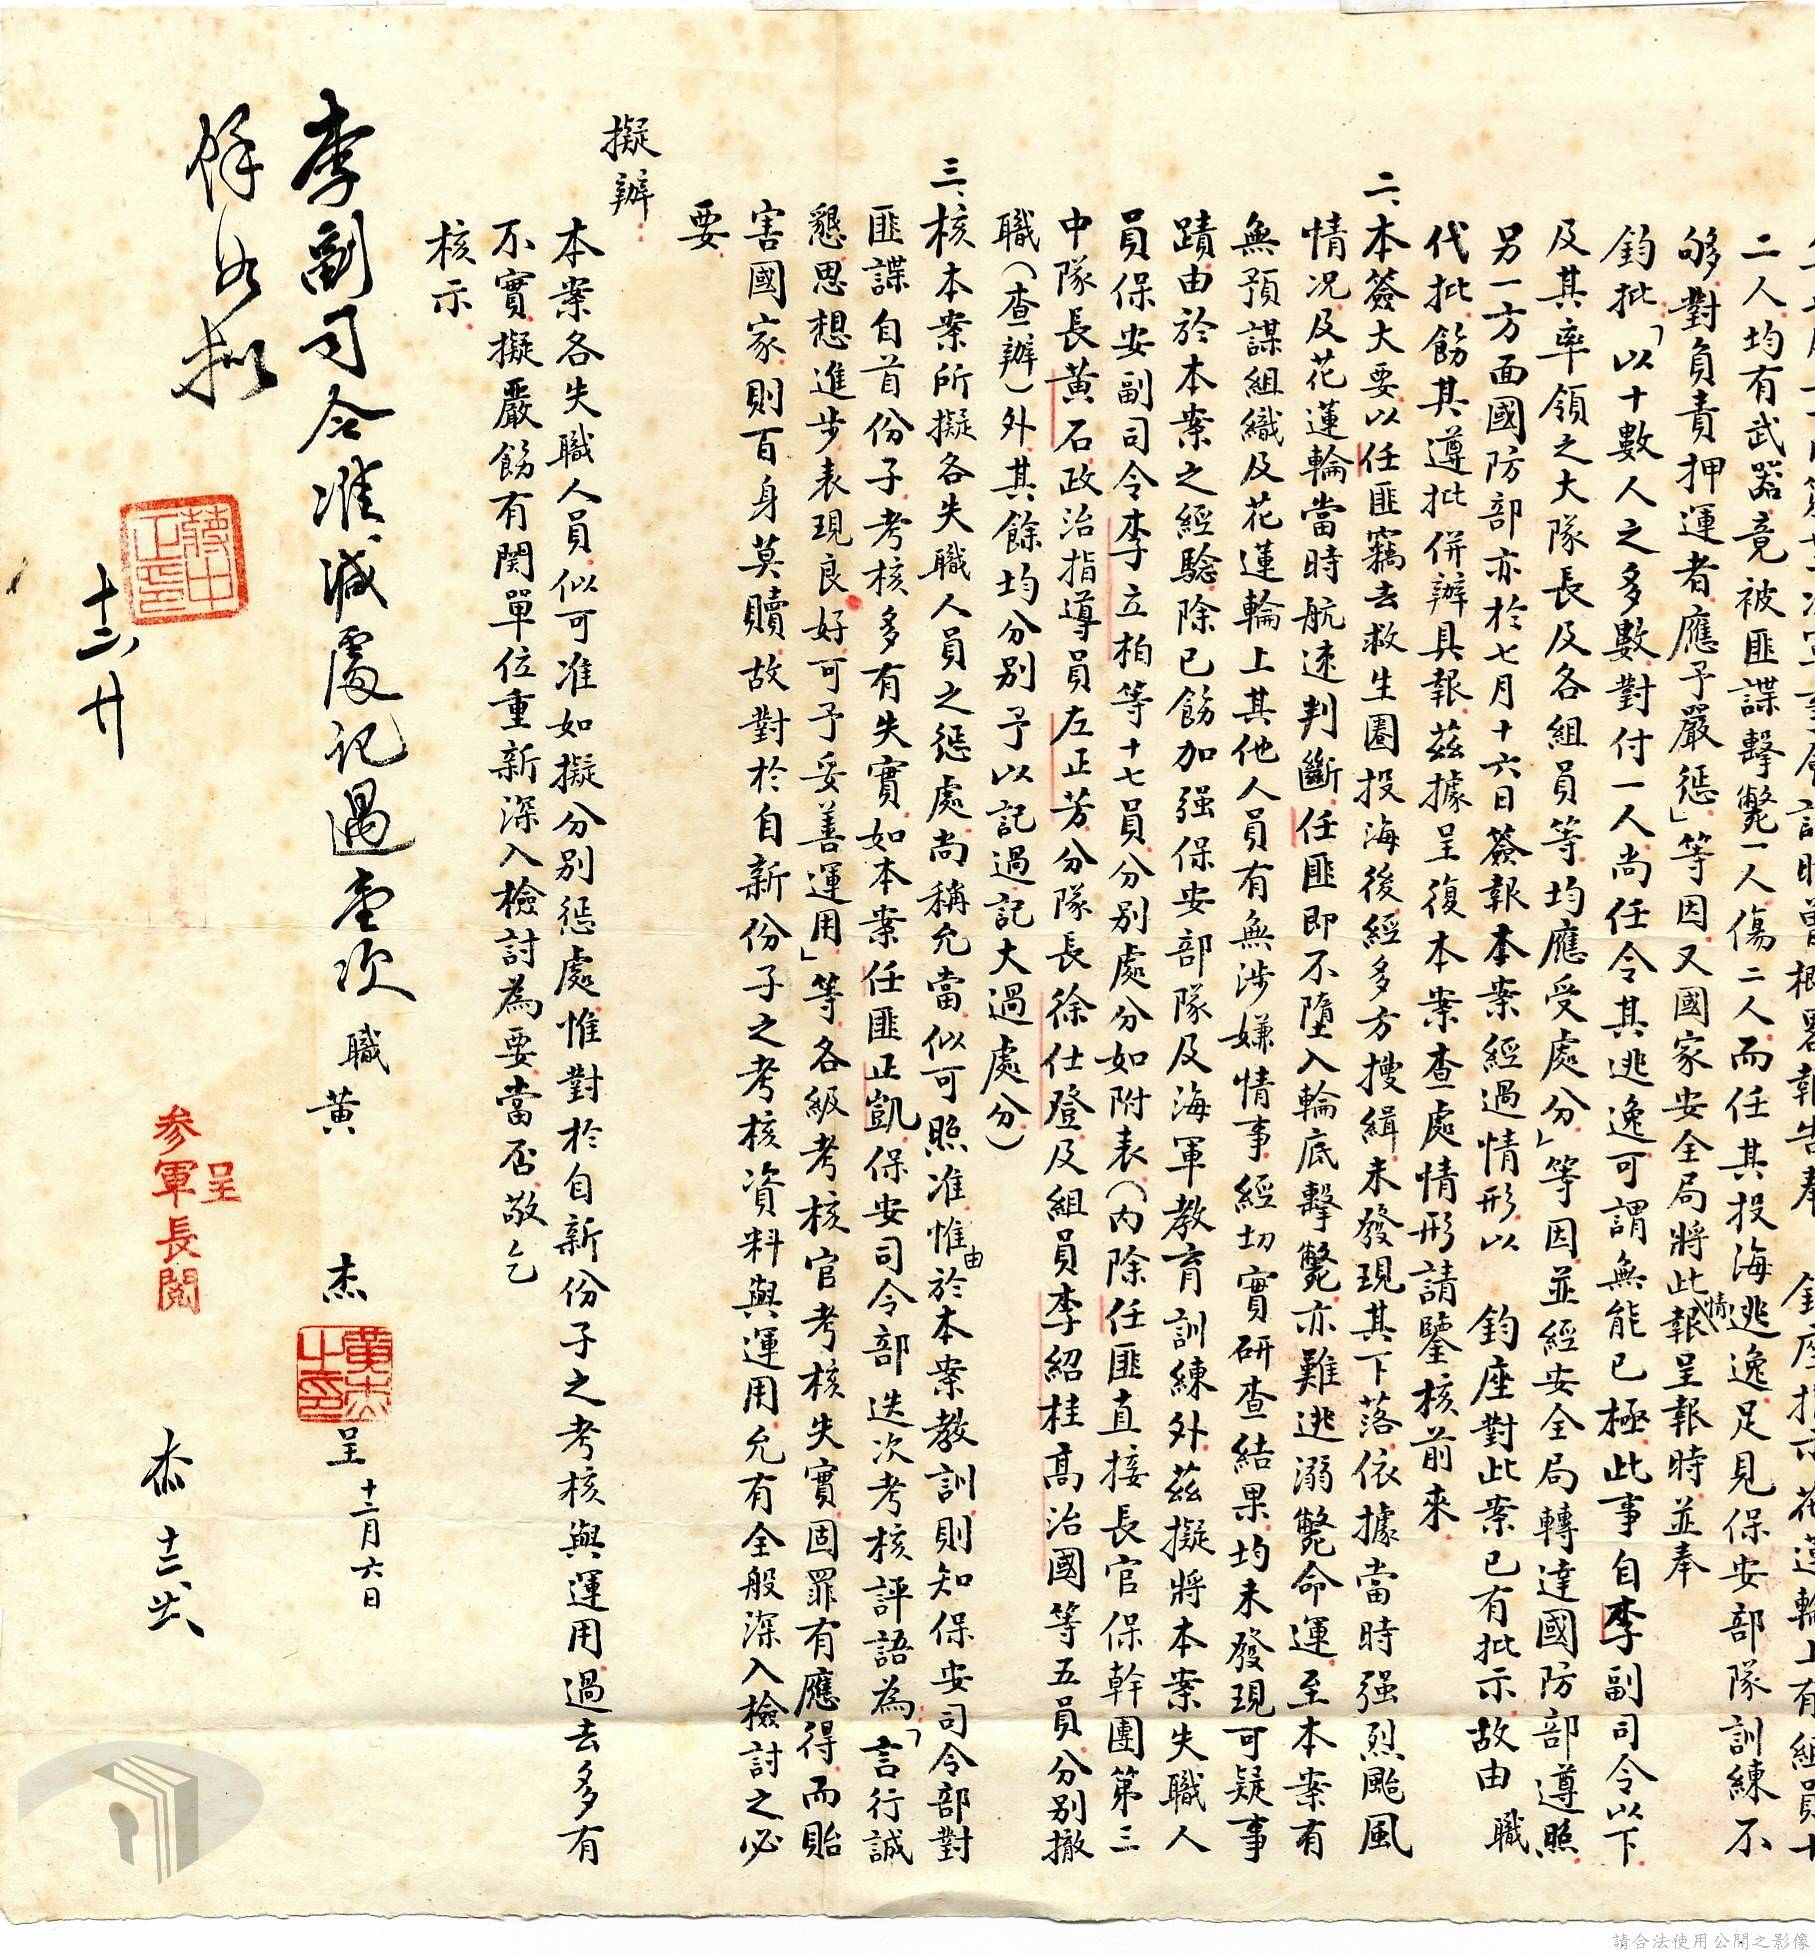 二人均有武器竟被匪諜擊斃一人傷二人而任其投海逃逸足見保安部隊訓練不
够對負責押運者應予嚴懲」等因又國家安全局將此情報呈報時並奉
鈞批「以十數人之多數對付一人尚任令其逃逸可謂無能已極此事自李副司令以下
及其率領之大隊長及各組員等均應受處分」等因並經安全局轉達國防部遵照
另一方面國防部亦於七月十六日簽報本案經過情形以 鈞座對此案已有批示故由 職
代批飭其遵批併辦具報茲據呈復本案查處情形請鑒核前來
二、本簽大要以任匪竊去救生圈投海後經多方搜緝未發現其下落依據當時强烈颱風
情况及花蓮輪當時航速判斷任匪即不墮入輪底擊斃亦難逃溺斃命運至本案有
無預謀組織及花蓮輪上其他人員有無涉嫌情事經切實研查結果均未發現可疑事
蹟由於本案之經驗除已飭加强保安部隊及海軍教育訓練外茲擬將本案失職人
員保安副司令李立柏等十七員分別處分如附表(內除任匪直接長官保幹團第三
中隊長黃石政治指導員左正芳分隊長徐仕登及組員李紹桂高治國等五員分別撤
職(查辦)外其餘均分別予以記過記大過處分)
三、核本案所擬各失職人員之懲處尚稱允當似可照准惟由於本案教訓則知保安司令部對
匪諜自首份子考核多有失實如本案任匪正凱保安司令部迭次考核評語為「言行誠
懇思想進步表現良好可予妥善運用」等各級考核官考核失實固罪有應得而貽
害國家則百身莫贖故對於自新份子之考核資料與運用允有全般深入檢討之必
要
擬辦:
本案各失職人員似可准如擬分別懲處惟對於自新份子之考核與運用過去多有
不實擬嚴飭有関單位重新深入檢討為要當否敬乞
核示
職 黃 杰 呈 十二月六日
黃杰之印
李副司令准減處記過壹次
餘如擬
蔣中正印
十二、廿
呈
參軍長閱